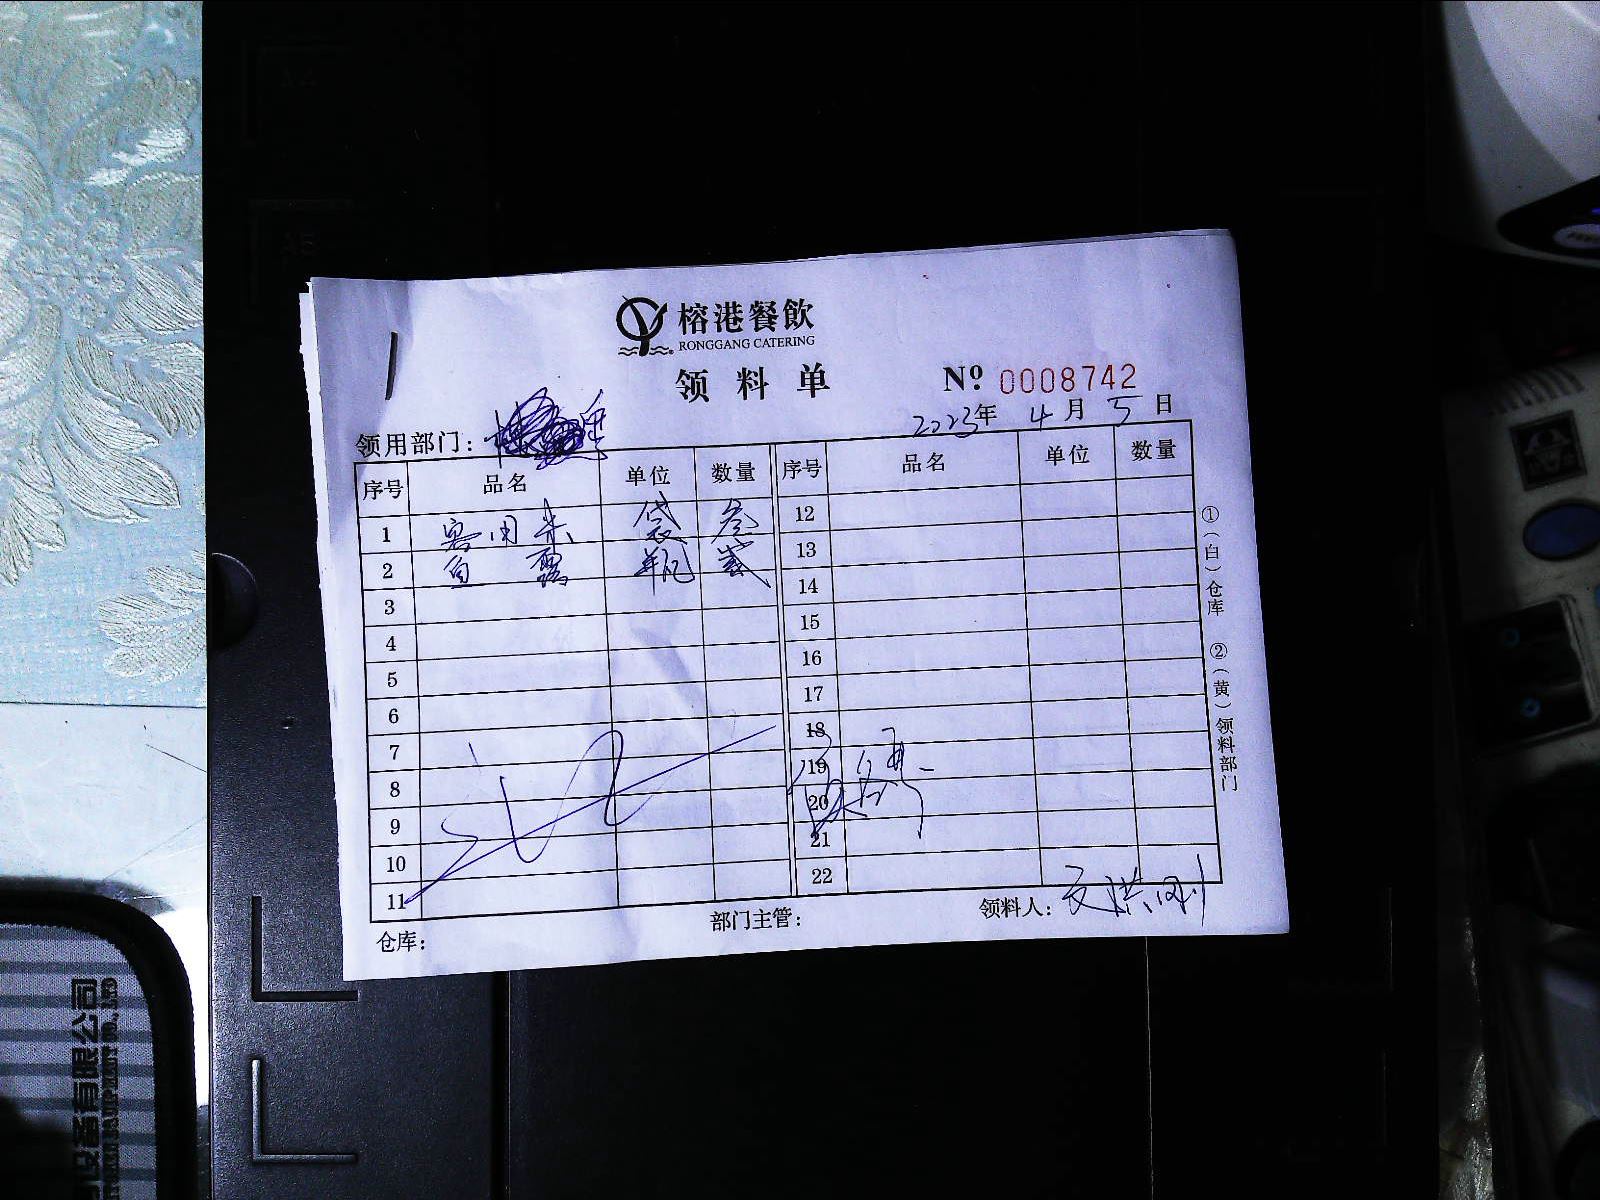 榕港餐飲
RONGGANG CATERING
领料单 Nº 0008742
2023年 4月 5日
领用部门：
序号 品名 单位 数量 序号 品名 单位 数量
1 客用米 袋 叁 12
2 白 瓶 贰 13
3 14
4 15
5 16
6 17
7 18
8 19
9 20
10 21
11 22
仓库： 部门主管： 领料人：文洪刚
①（白）仓库 ②（黄）领料部门
A4
A5